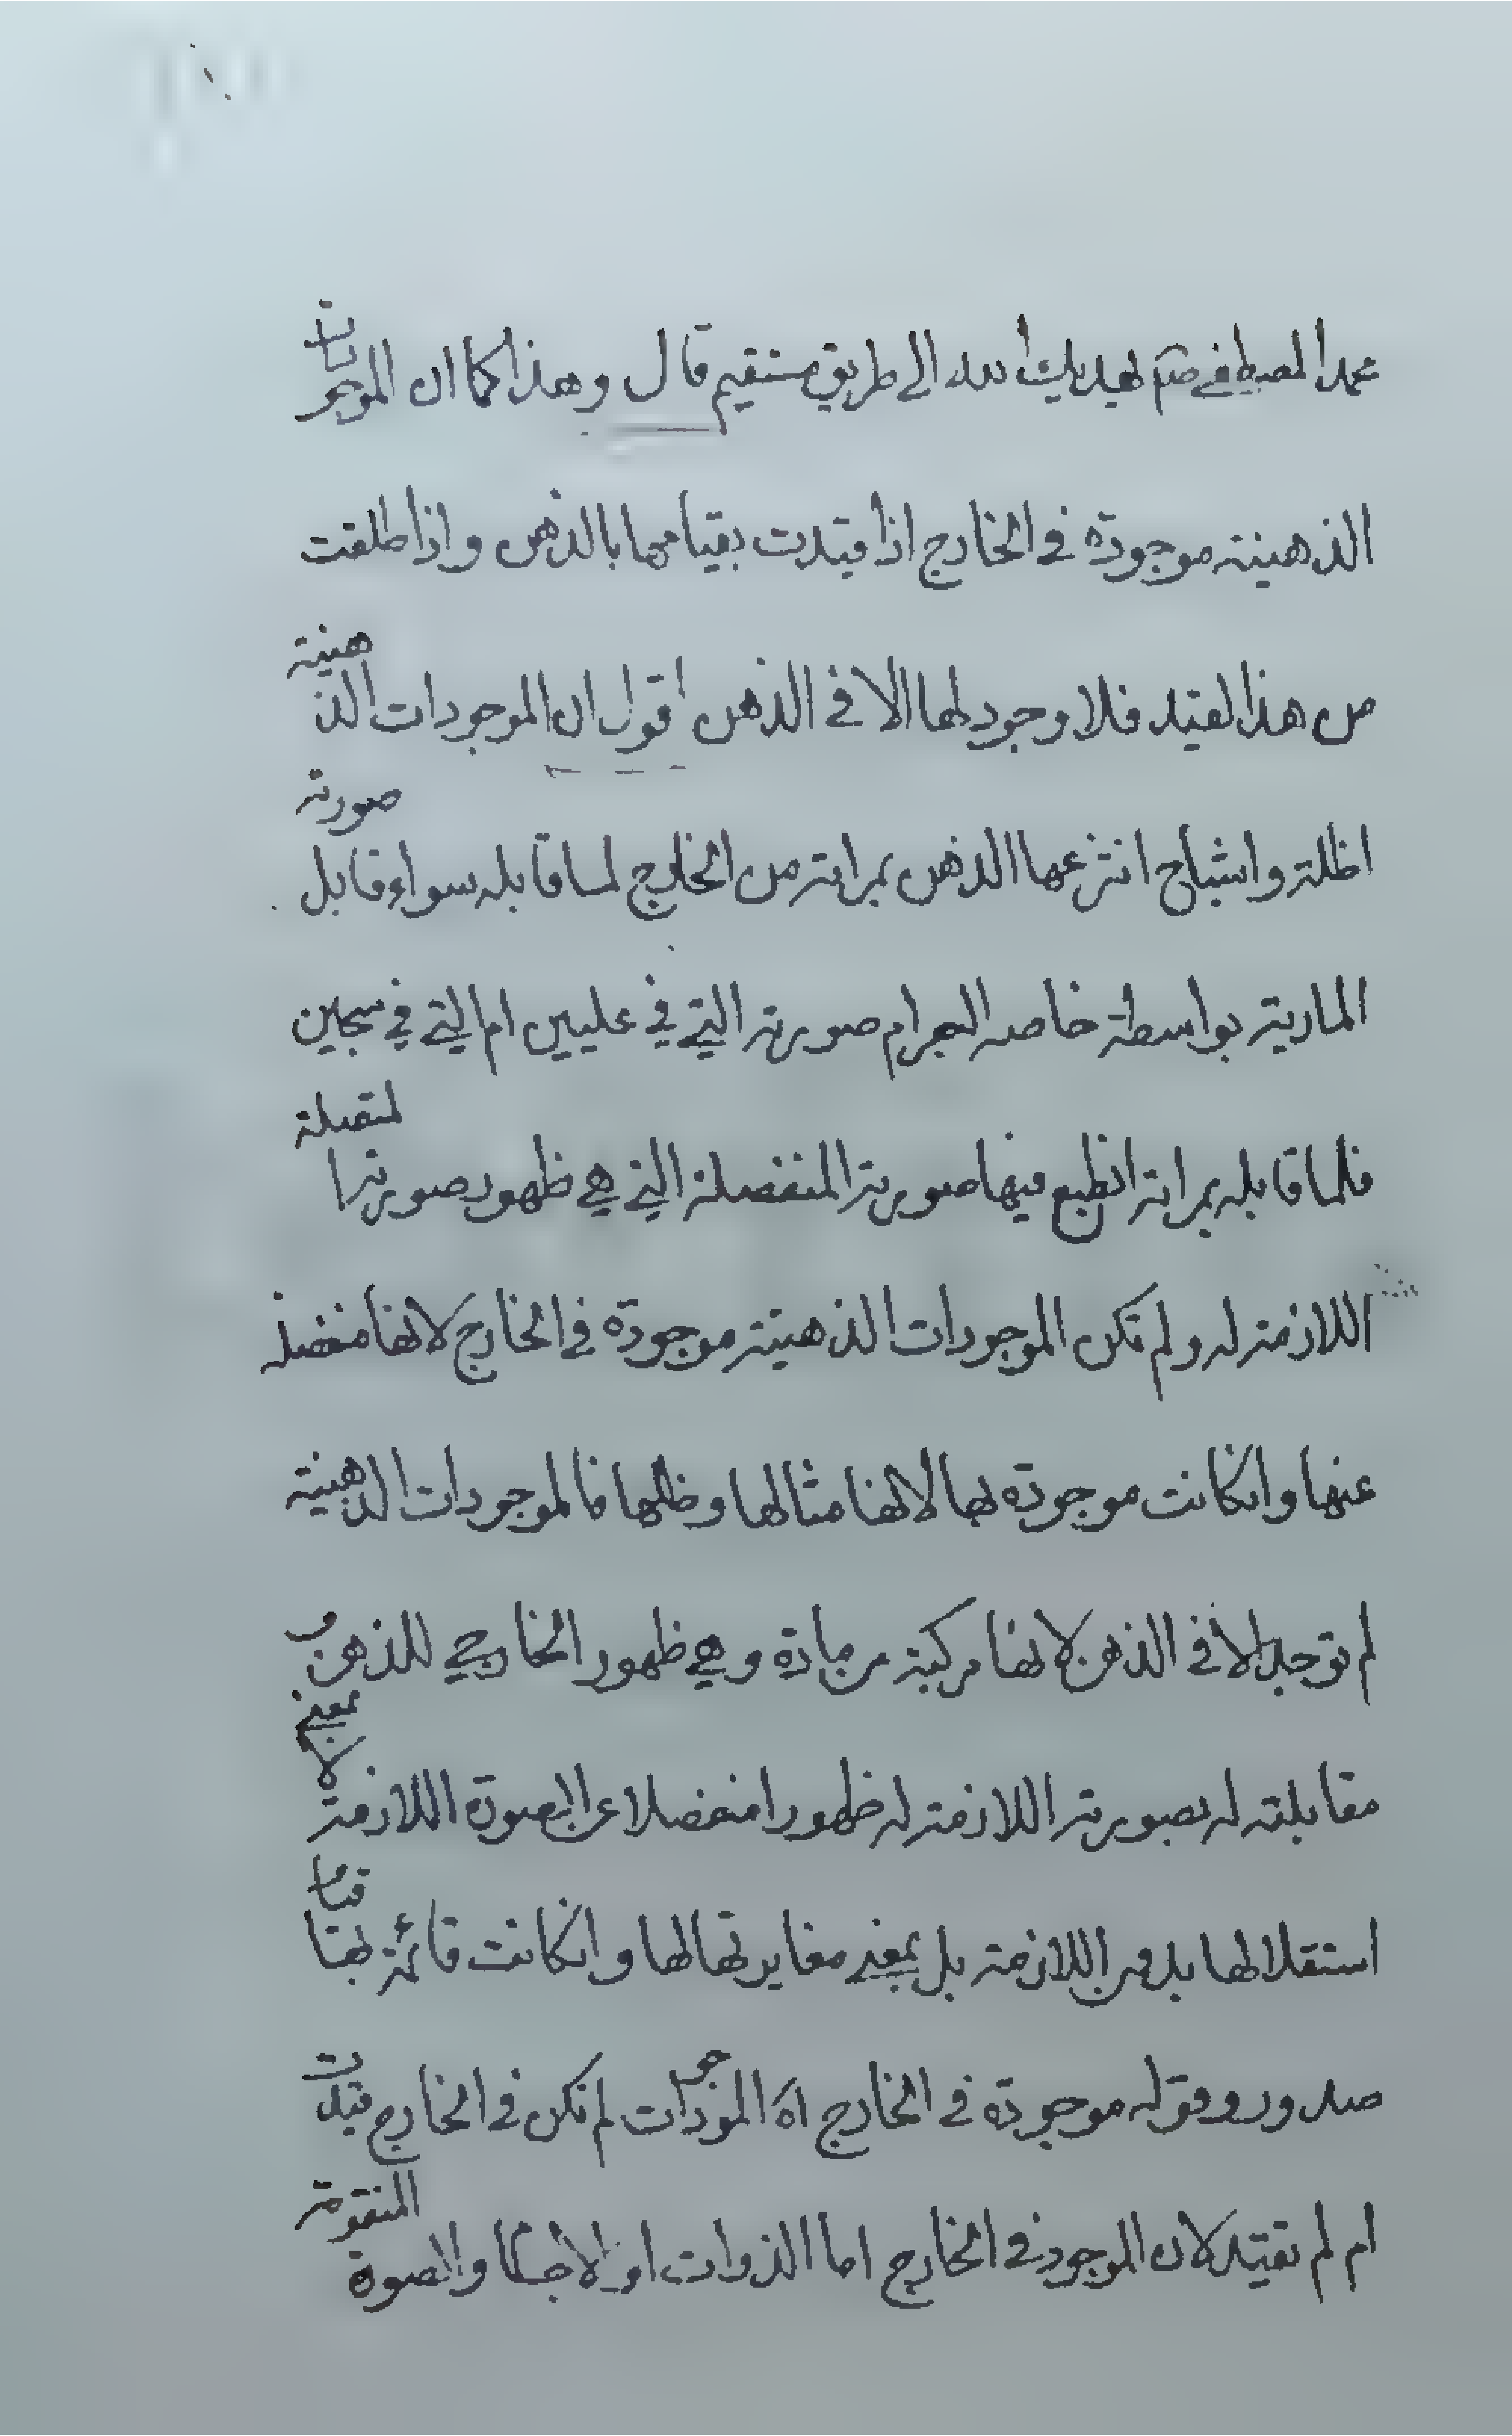 محمد المصطفى صلم يهديك الله الى طريق مستقيم قال وهذا كما ان الموجودات
الذهنية موجودة في الخارج اذا قيدت بقيامها بالذهن واذا طلقت
من هذا لقيد فلا وجود لها الا في الذهن اقول ان الموجودات الذهنية
اظلة واشباح انتزعها الذهن بمراته من الخارج لما قابله سواء قابل صورته
المارية بواسطة خاصه الهرام صورته التي في عليين ام التي في سجين
فلما قابله بمراته انطبع فيها صورته المنفصلة التي هي ظهور صورته المتصلة
اللازمة له ولم تكن الموجودات الذهنية موجودة في الخارج لانها منفصلة
عنها وانكانت موجودة بها لانها مثالها وظلها فالموجودات الذهنية
لم توجد الا في الذهن لانها مركبة من مادة وهي ظهور الخارجي للذهن و
مقابلته له بصورته اللازمة له ظهورا منفصلا عن الصورة اللازمة لا بمعنى
استقلالها بدون اللازمة بل بمعنى مغايرتها لها وانكانت قائمة بها قيام
صدور وقوله موجودة في الخارج اه الموجودات لم تكن في الخارج قيدت
ام لم تقيد لان الموجود في الخارج اما الذوات او الاجسام والصورة المتقومة